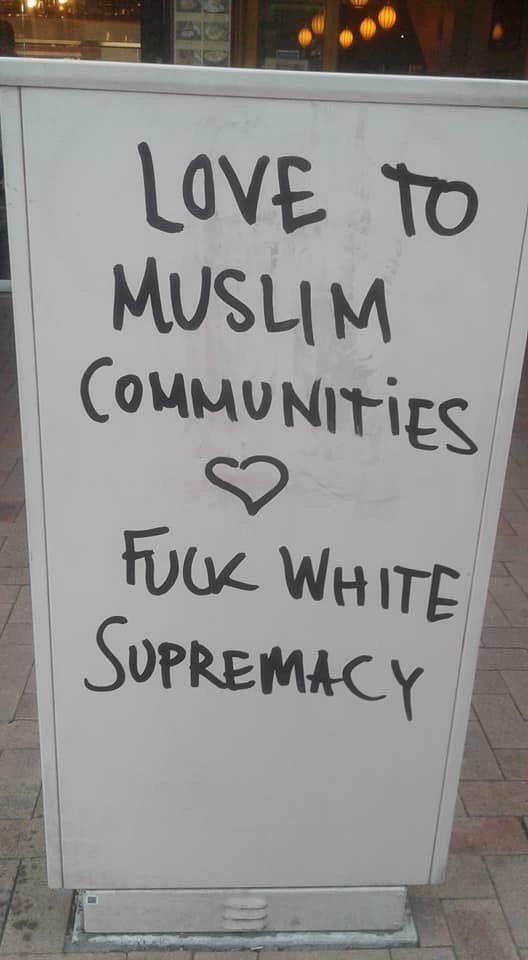 LOVE TO
MUSLIM
COMMUNITIES
♡
FUCK WHITE
SUPREMACY